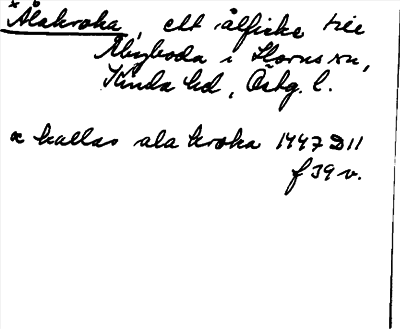 * Ålakroka, ett ålfiske till
Åbyboda i Horns sn,
Kinda hd, Östg. l.
æ kallas ala kroka 1447 D 11
f 39 v.